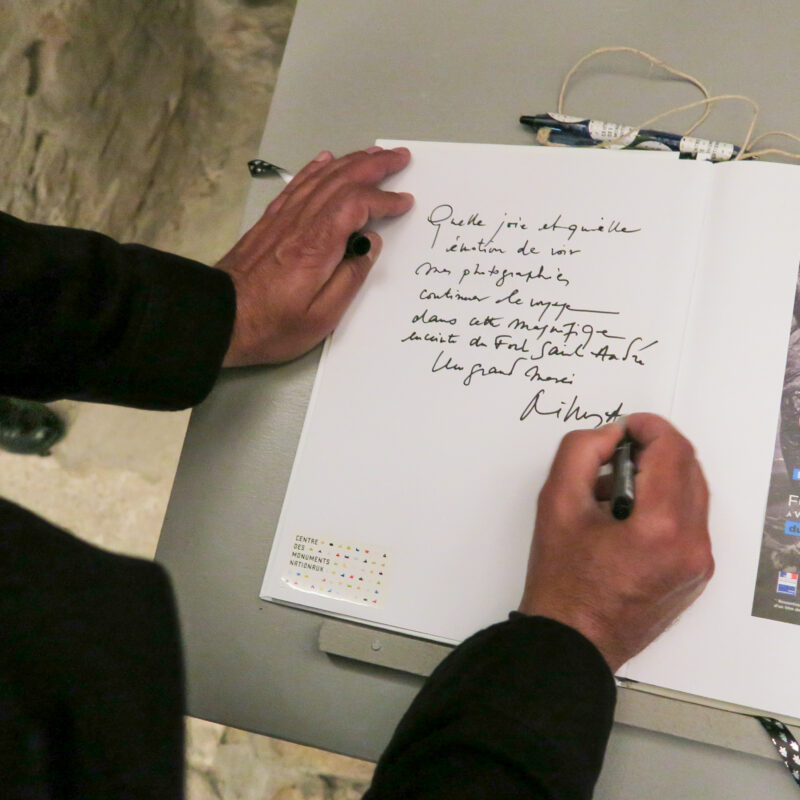 Quelle joie et quelle
émotion de voir
mes photographies
continuer le voyage
dans cette magnifique
enceinte du Fort Saint André
Un grand merci
CENTRE
DES
MONUMENTS
NATIONAUX